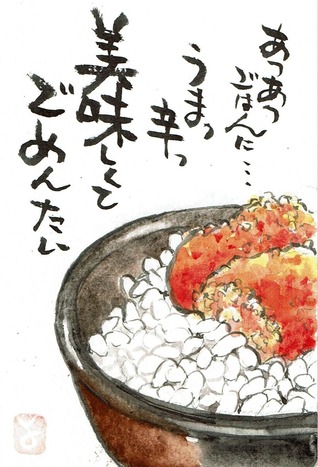 あつあつ
ごはんに…
うまっ
辛っ
美味しくて
ごめんたい